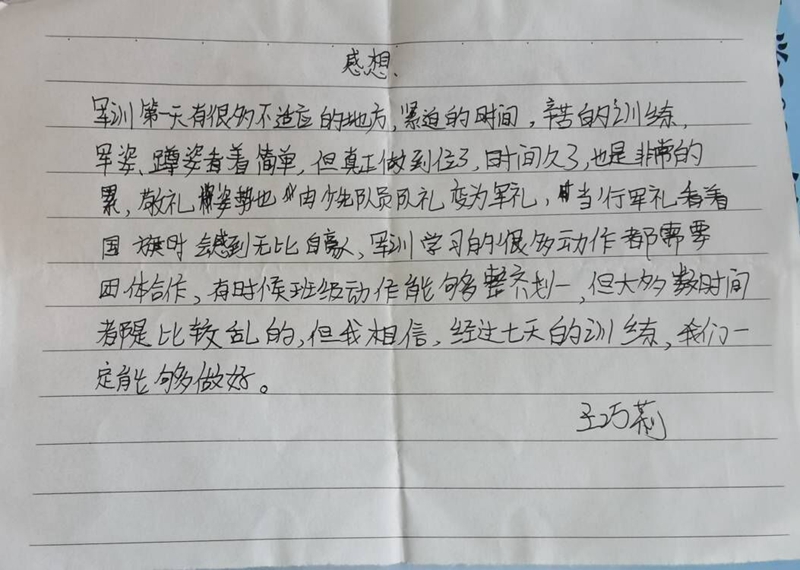 感想、
军训第一天有很多不适应的地方,紧迫的时间,辛苦的训练,
军姿、蹲姿看着简单,但真正做到位了,时间久了,也是非常的
累,敬礼姿势也由少先队员队礼变为军礼,当行军礼看着
国旗时会感到无比自豪、军训学习的很多动作都需要
团体合作,有时候班级动作能够整齐划一,但大多数时间
都是比较乱的,但我相信,经过七天的训练,我们一
定能够做好。
王巧莉